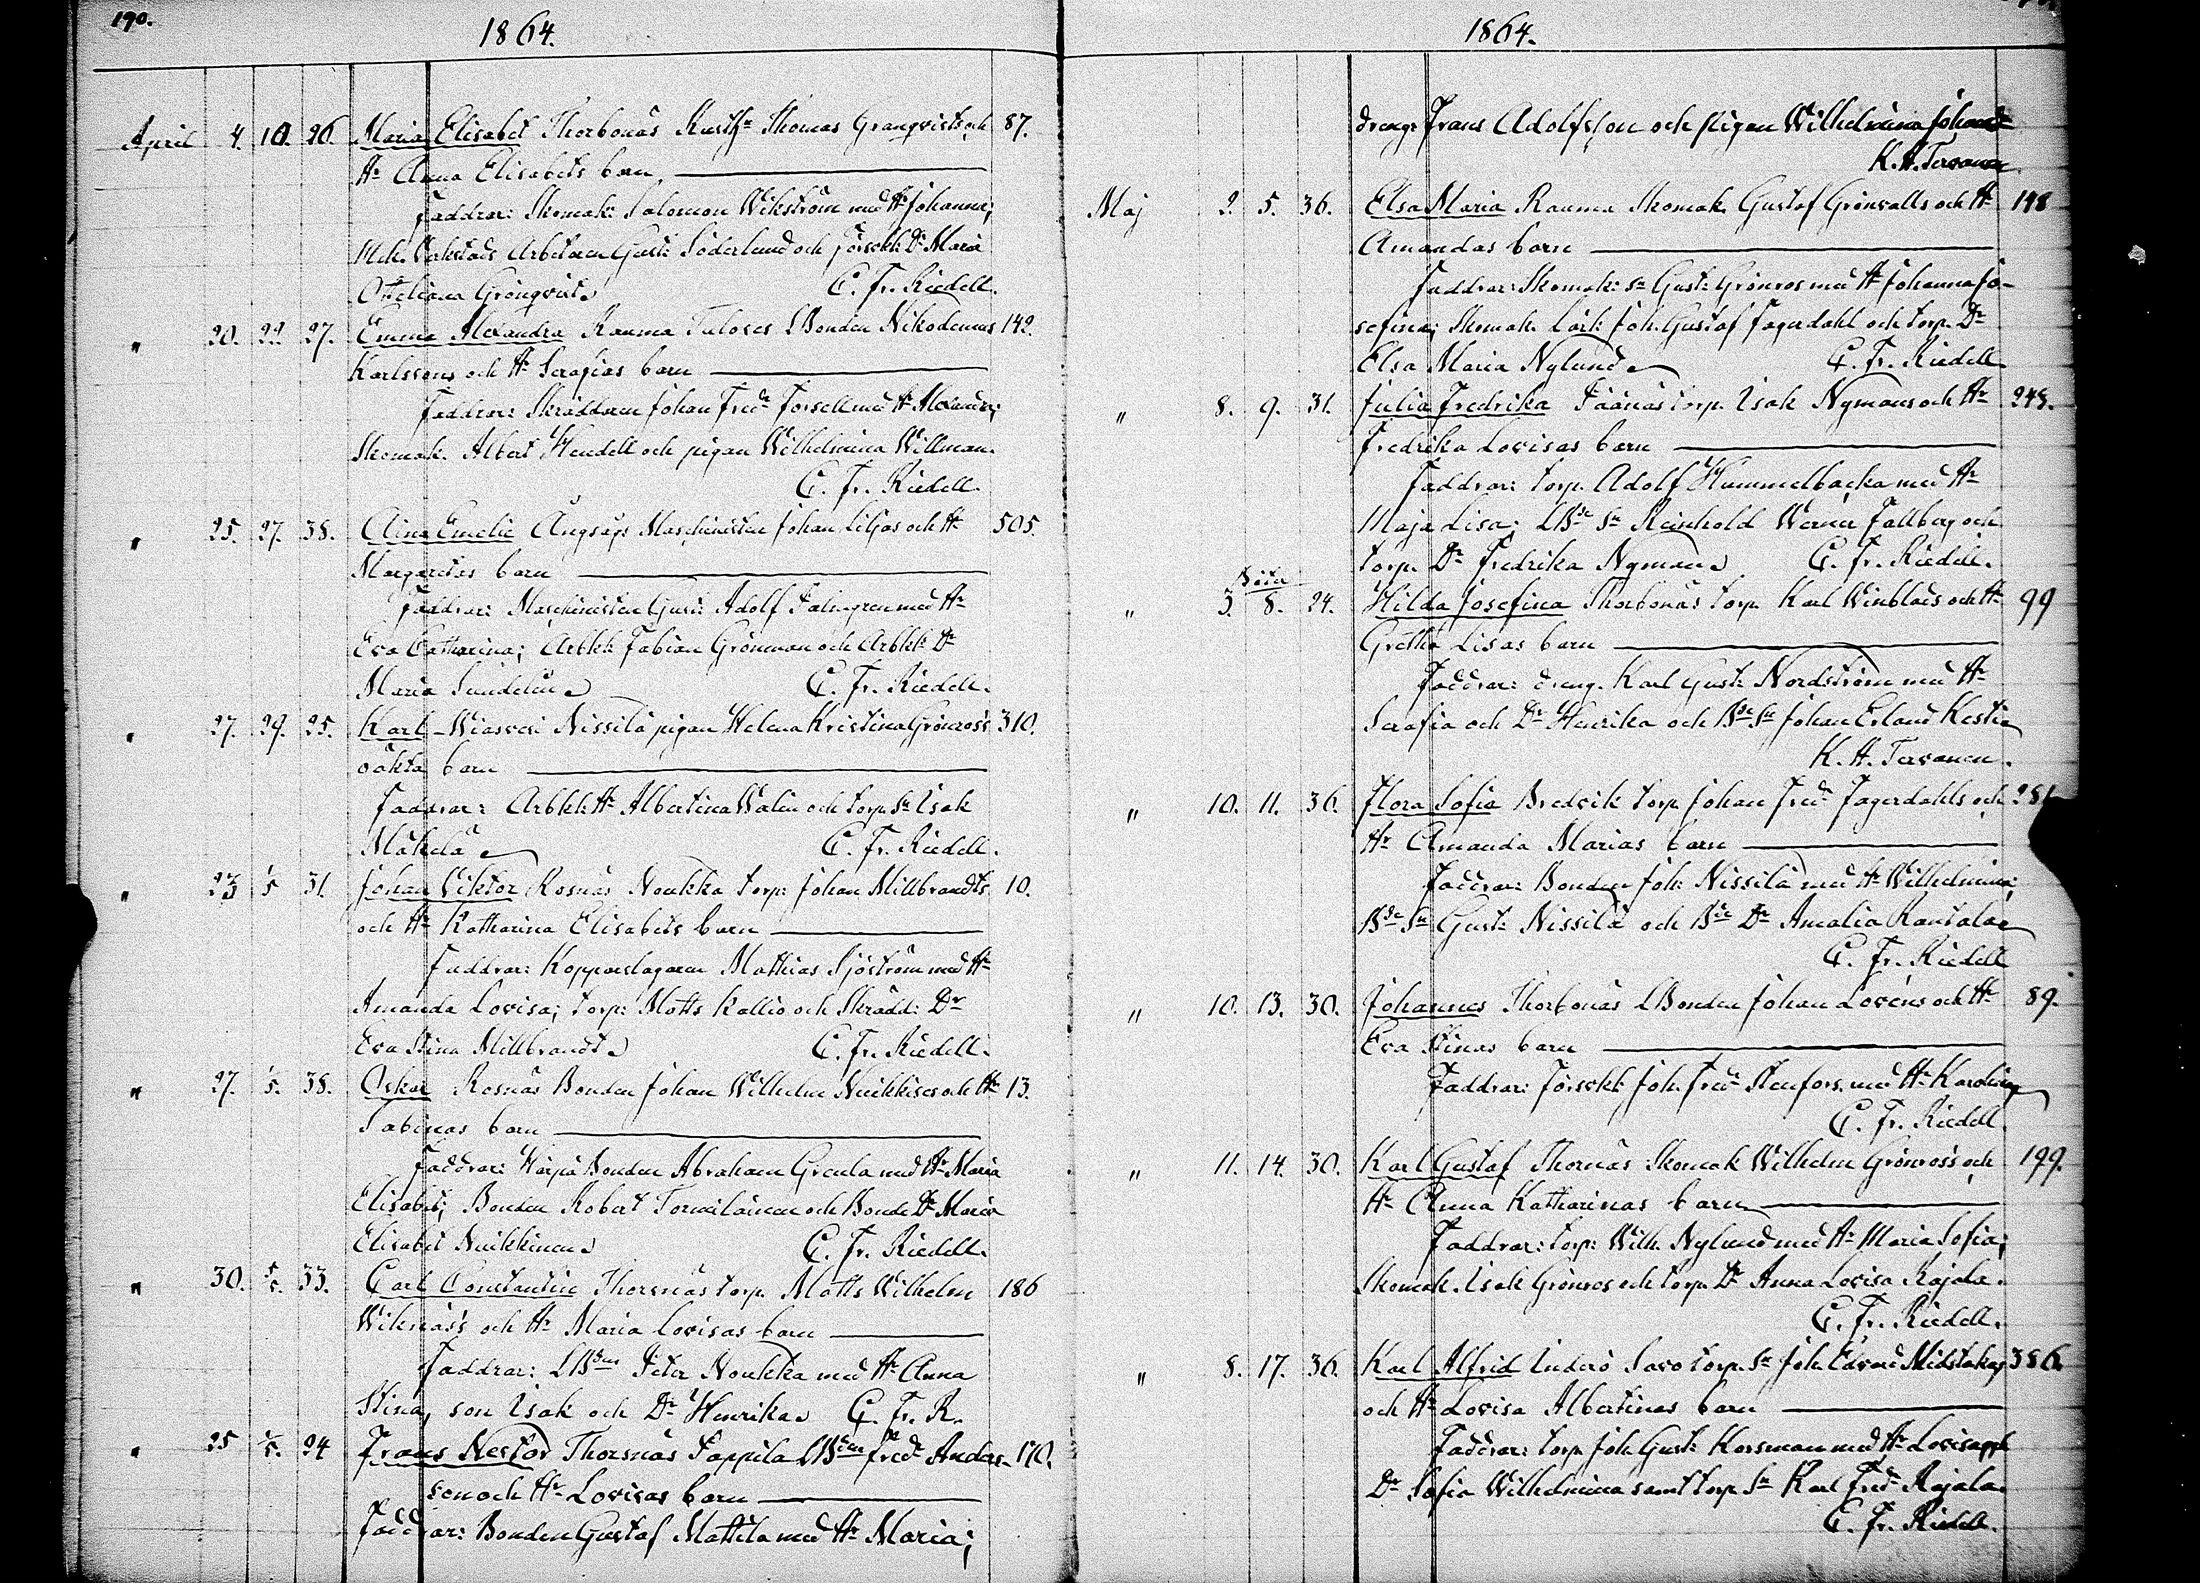 190.
1864.
April 4. 10. 26. Maria Elisabet Thorbonäs Rusth. Thomas Granqvists och 87.
Hr Anna Elisabets barn
Faddrar: Skomak: Salomon Wikström med Hr Johanna;
Mek. Verkstads Arbetaren Gust: Söderlund och Dr Maria
Otteliana Grönqvist C. Fr. Riedell.
" 20. 22. 27. Emma Alexandra Rauma Tuloses LBonden Nikodemus 142.
Karlssons och Hr Serafias barn
Faddrar: Skräddaren Johan Fredr Forsell med Hr Alexandra;
Skomak. Albert Hendell och pigan Wilhelmina Willman.
C. Fr. Riedell.
" 25. 27. 38. Aina Emelie Ångsågs Maschinisten Johan Liljas och Hr 505.
Margaretas barn
Faddrar: Maschinisten Gust: Adolf med Hr
Eva Catharina; Arbkk: Fabian Grönman och Arbkk: Dr
Maria Sundelin C. Fr. Riedell.
" 27. 29. 25. Karl Wiasvesi Nissilä pigan Helena Kristina Grönros's 310.
oäkta barn
Faddrar: Arbkk: Hr Albertina Walin och torp. Sn Isak
Mäkelä C. Fr. Riedell.
" 23 1/5 31. Johan Viktor Rosnäs Noukka torp: Johan Millbrandts 10.
och Hr Katharina Elisabets barn
Faddrar: Kopparslagaren Mathias Sjöström med Hr
Amanda Lovisa; torp: Matts Kallio och Skrädd: Dr
Eva Stina Millbrandt C. Fr. Riedell.
" 27. 1/5. 38. Oskar Rosnäs Bonden Johan Wilhelm Nuikkises och Hr 13.
Sabinas barn
Faddrar: Bonden Abraham Greula med Hr Maria
Elisabet; Bonden Robert Tormiläinen och Bonde Dr Maria
Elisabet Nuikkinen C. Fr. Riedell.
" 30. 33. Carl Constantin Thorsnäs torp. Matts Wilhelm 186
Wiknäs's och Hr Maria Lovisas barn
Faddrar: LBden Peter Noukka med Hr Anna
Stina, son Isak och Dr Henrika C. Fr. R.
" 25 24 Frans Nestor Thorsnäs Pappila LBden Fredr Anders- 170.
son och Hr Lovisas barn
Faddrar: Bonden Gustaf Mattila med Hr Maria;
1864.
dreng. Frans Adolfsson och pigan Wilhelmina
K. H. Tervonen.
Maj 2. 5. 36. Elsa Maria Rauma Skomak. Gustaf Grönvalls och Hr 148
Amandas barn
Faddrar: Skomak: Sn Gust: Grönros med Hr Johanna Jo-
sefina; Skomak. Lärl: Joh. Gustaf Fagerdahl och torp. Dr
Elsa Maria Nylund C. Fr. Riedell.
" 8. 9. 31. Julia Fredrika Påänäs torp. Isak Nymans och Hr 243.
Fredrika Lovisas barn
Faddrar: torp. Adolf Hummelbacka med Hr
Maja Lisa; LBde Sn Reinhold Werner Fallberg och
torp. Dr Fredrika Nyman C. Fr. Riedell.
" 3. 8. 24. Hilda Josefina Thorbonäs torp. Karl Winblads och Hr 99
Gretha Lisas barn
Faddrar: dreng. Karl Gust: Nordström med Hr
Serafia och Dr Henrika och Bde Sn Johan Erland Kestie
K. H. Tervonen.
" 10. 11. 36. Flora Sofia Bredvik torp. Johan Fredr Fagerdahls och 281
Hr Amanda Marias barn
Faddrar: Bonden Joh: Nissilä med Hr Wilhelmina;
Bde Sn Gust: Nissilä och Bde Dr Amalia Rantala
C. Fr. Riedell
" 10. 13. 30. Johannes Thorbonäs LBonden Johan Lovéns och Hr 89.
Eva Stinas barn
Faddrar: Joh. Fredr Stenfors. med Hr Karolina
C. Fr. Riedell.
" 11. 14. 30. Karl Gustaf Thornäs Skomak Wilhelm Grönros's och 199.
Hr Anna Katharinas barn
Faddrar: torp: Wilh. Nylund med Hr Maria Sofia;
Skomak. Isak Grönros och torp. Dr Anna Lovisa Rajala.
C. Fr. Riedell.
" 8. 17. 36. Karl Alfrid Inderö Savo torp. Sn Joh. Edvard Midstakas 386.
och Hr Lovisa Albertinas barn
Faddrar: torp. Joh. Gust: Korsman med Hr Lovisa
Dr Sofia Wilhelmina samt torp. Sn Karl Fredr Rajala
C. Fr. Riedell.